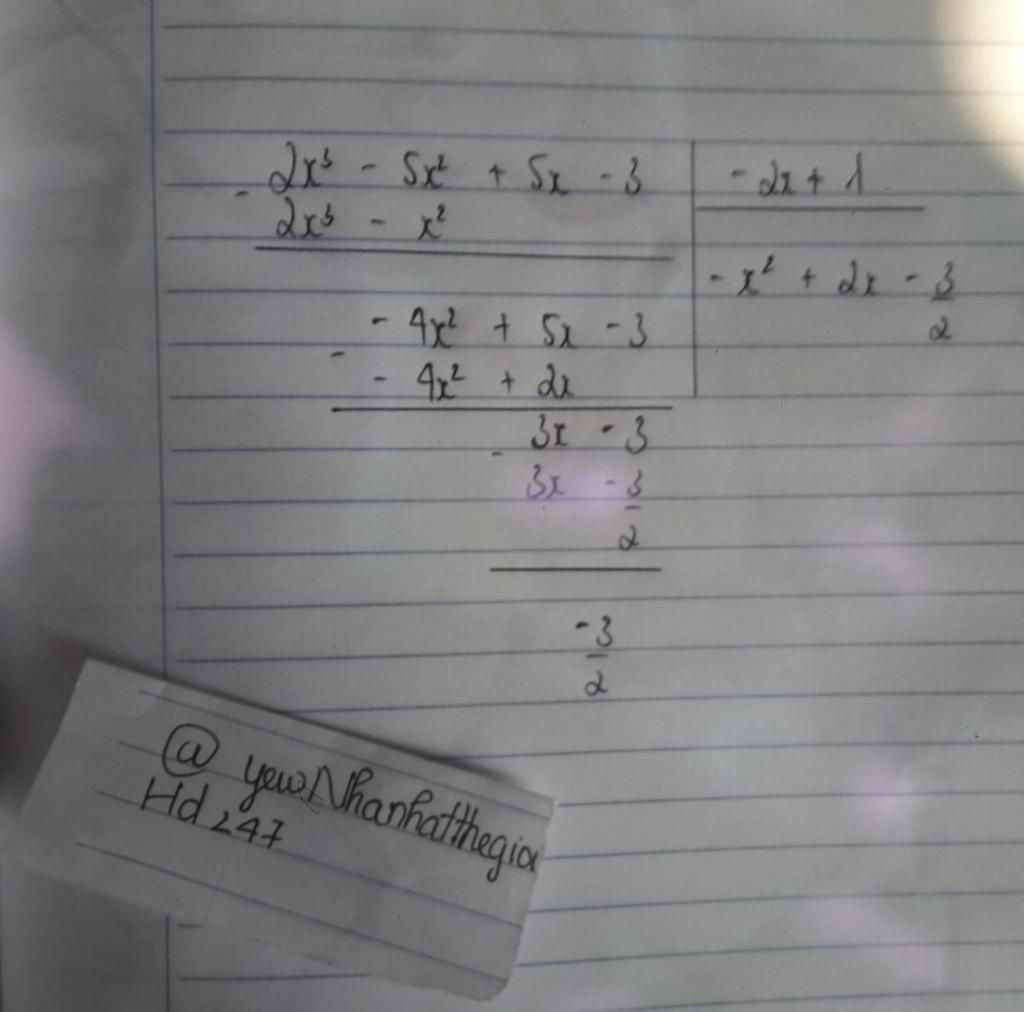 - 2x³ - 5x² + 5x - 3 | - 2x + 1
2x³ - x²
- x² + 2x - 3/2
- 4x² + 5x - 3
-
- 4x² + 2x
3x - 3
-
3x - 3/2
-3/2
@ yewNhanhatthegioi
Hd 247